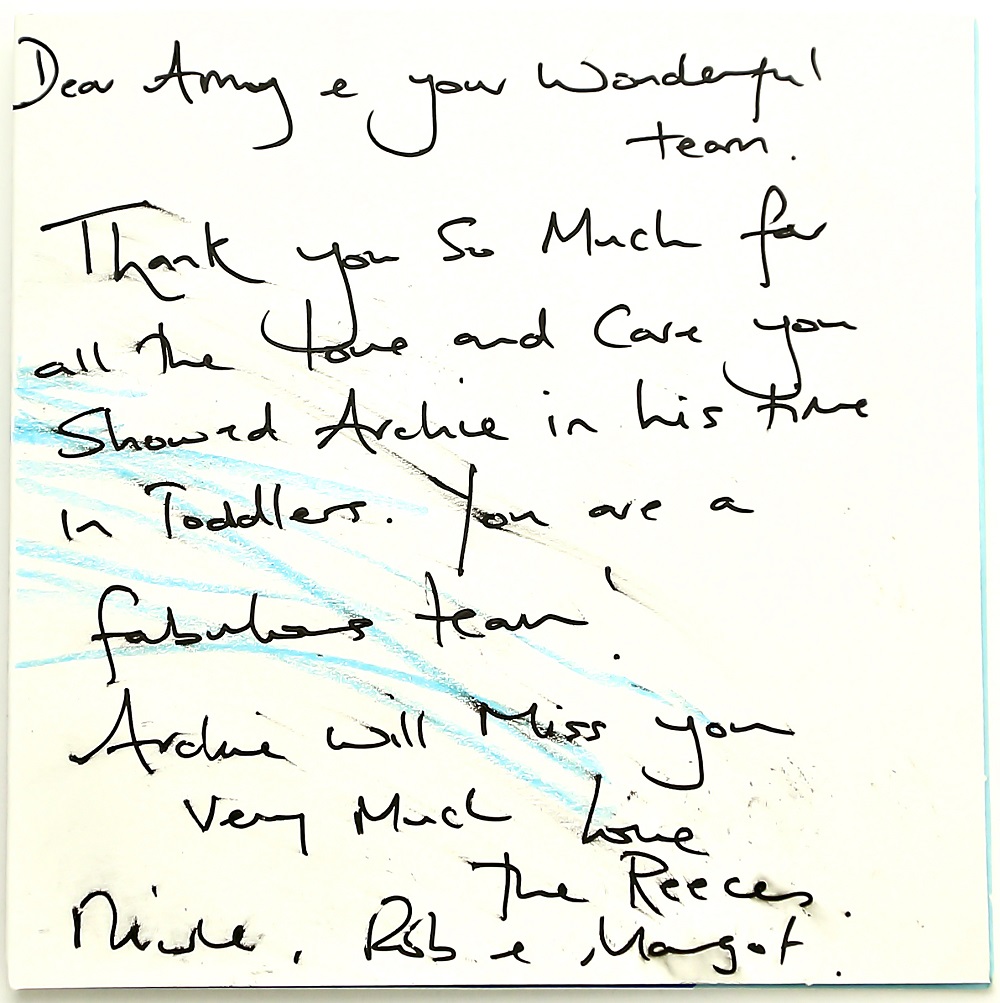 Dear Amy & your Wonderful
team.
Thank you So Much for
all the love and Care you
Showed Archie in his time
in Toddlers. You are a
fabulous team!
Archie will Miss you
Very Much Love
The Reeces.
Nicole, Rob & Margot.